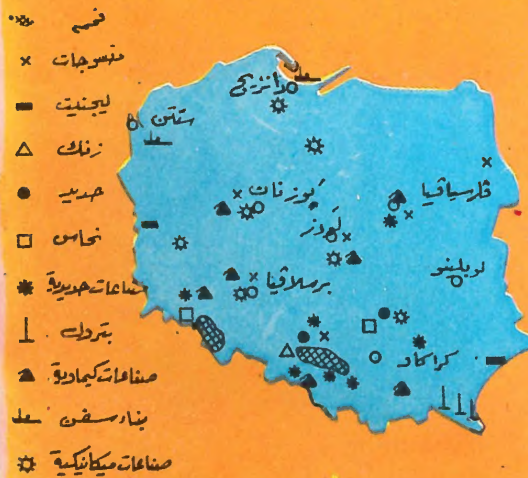 فحم
منسوجات
ليجنيت
زنك
حديد
نحاس
صناعات حديدية
بترول
صناعات كيماوية
بناء سفن
صناعات ميكانيكية
دانزيج
ستتن
ڤارسياڤيا
بوزنان
لودز
لوبلينو
برسلاڤيا
كراكاو